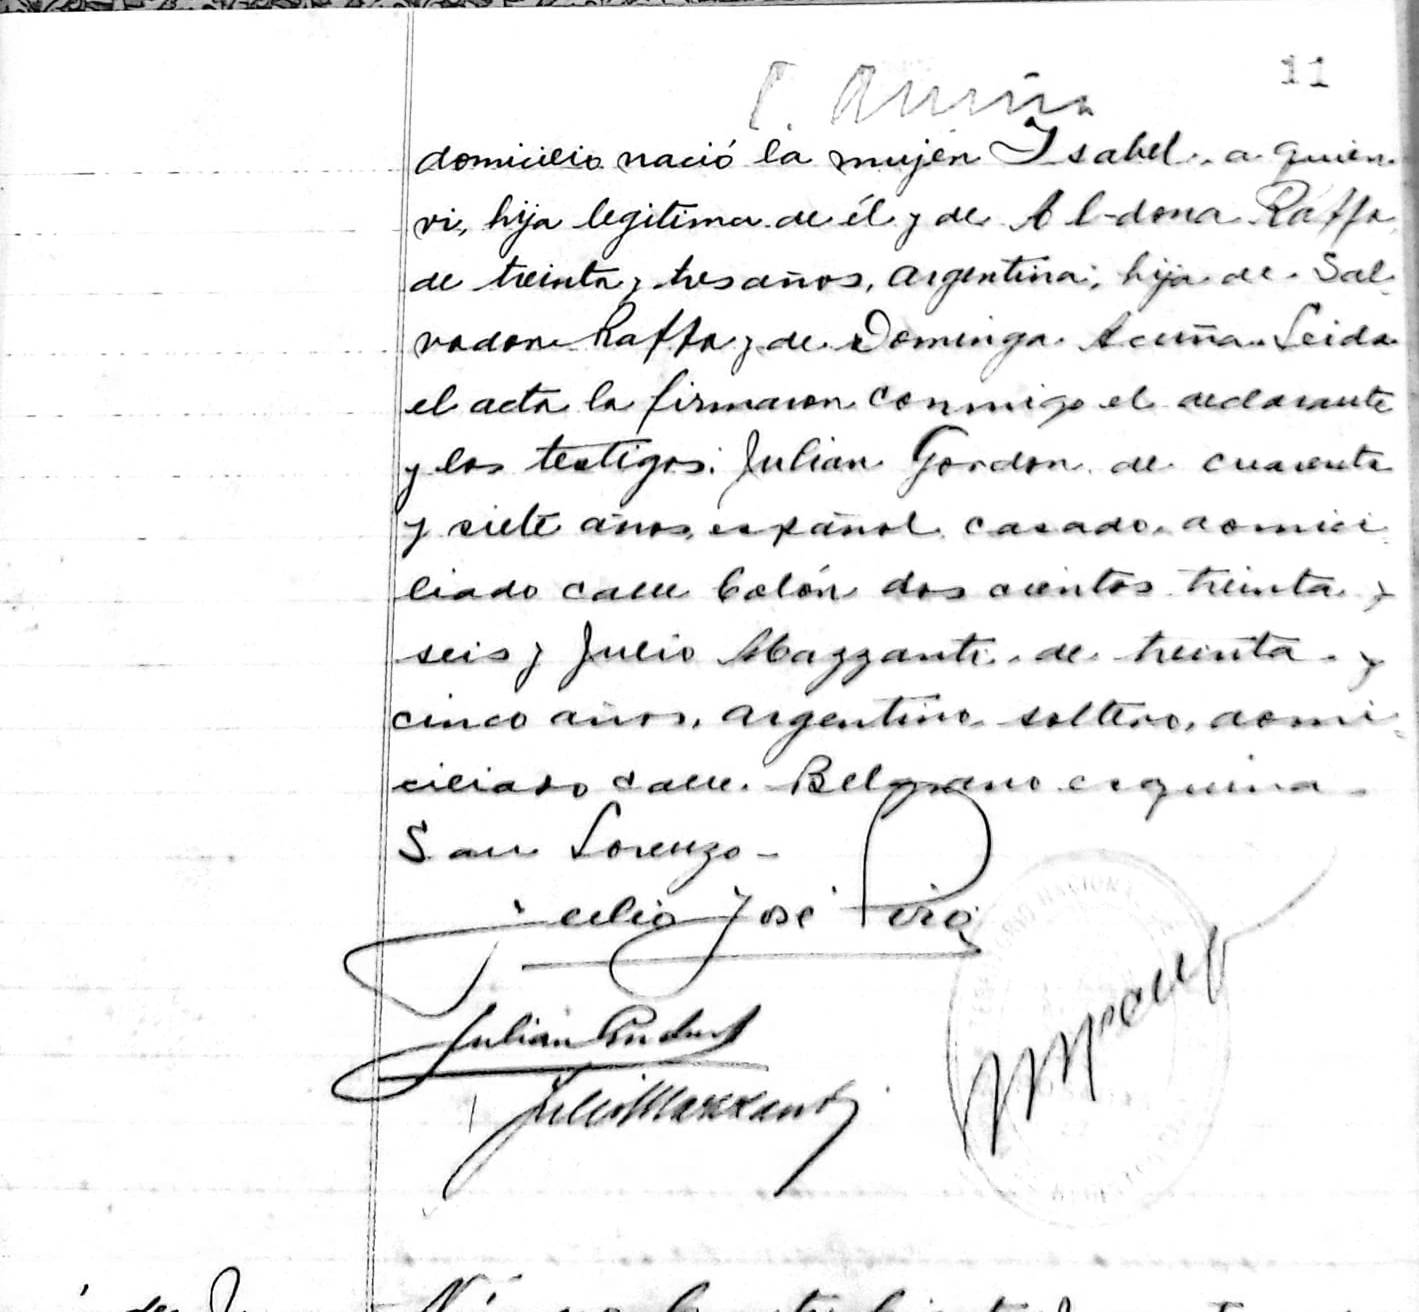 11
domicilio nació la mujer Isabel, a quien
vi, hija legitima de él y de Aldona Raffa,
de treinta y tres años, argentina, hija de Sal-
vador Raffa y de Dominga Acuña. Leida
el acta la firmaron conmigo el declarante
y los testigos: Julian Gordon de cuarenta
y siete años, español, casado, domici
liado calle Colón dos cientos treinta y
seis y Julio Mazzanti, de treinta y
cinco años, argentino, soltero, domi-
ciliado calle Belgrano esquina
San Lorenzo-
José
Julian
Julio Mazzanti